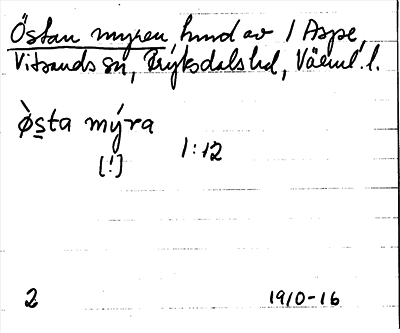 Östan myren, hmd av 1 Aspe,
Vitsands sn, Fryksdals hd, Värml. l.
ø̀s̲ta mýra
[!]
1:12
2
1910-16